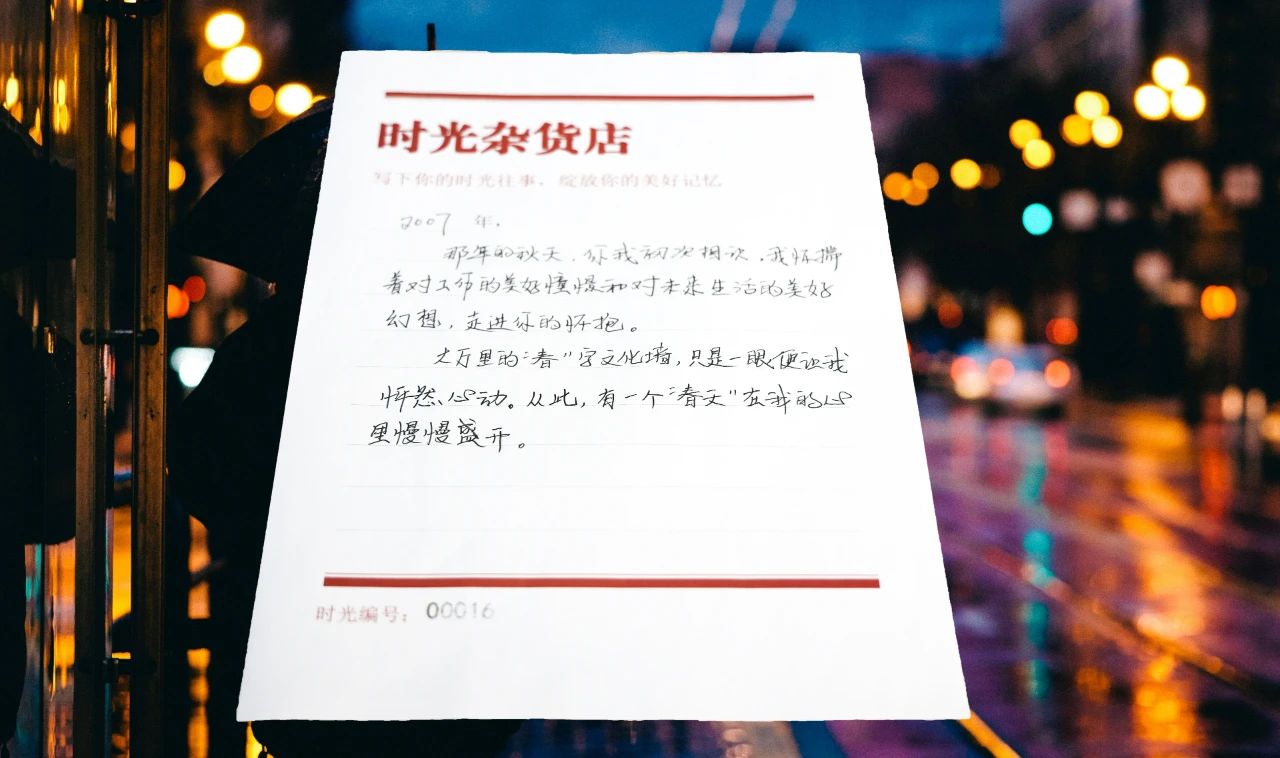 时光杂货店
写下你的时光往事，绽放你的美好记忆
2007 年.
那年的秋天，你我初次相识，我怀揣
着对工作的美好憧憬和对未来生活的美好
幻想，走进你的怀抱。
七万里的“春”字文化墙，只是一眼便让我
怦然心动。从此，有一个“春天”在我的心
里慢慢盛开。
时光编号：00016